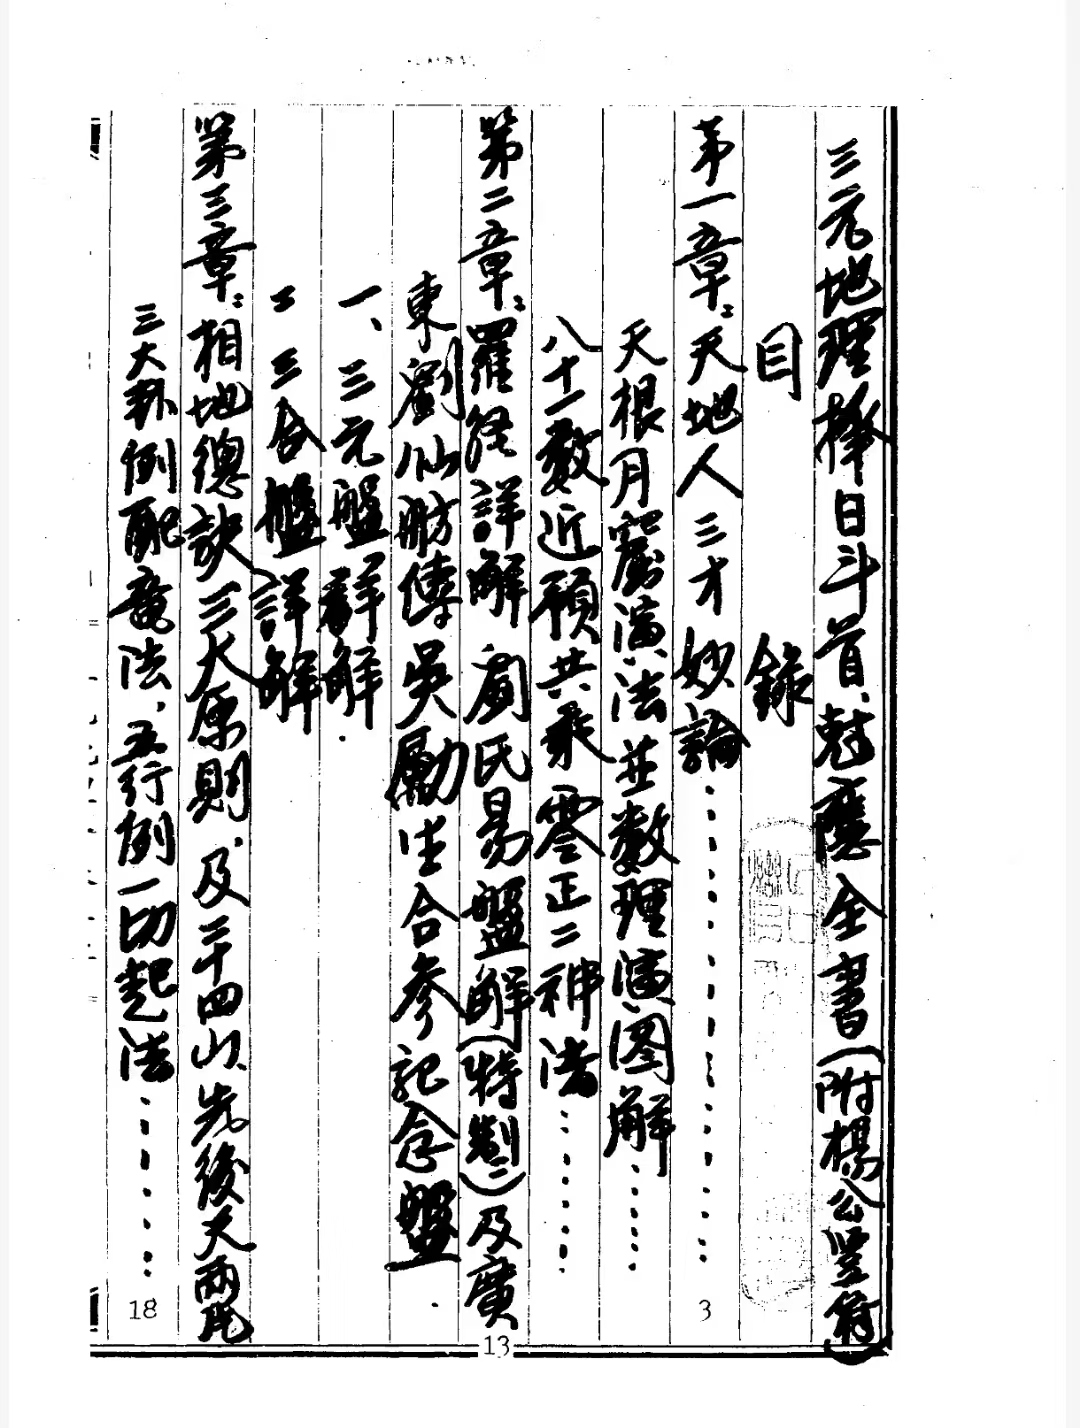 三元地理擇日斗首、尅應全書(附楊公竪符)
目錄
第一章：天地人三才妙論……………3
天根月窟演法並数理演图解……
八十一数近預共乘零正二神法……
第二章：羅經詳解 劉氏易盤解(特製二)及廣13
東劉仙舫傳吳勵生合參記念盤
一、三元盤詳解.
二 三合盤詳解
第三章：相地總訣、三大原則、及二十四山、先後天兩
三大卦例配龍法，五行例一切起法……18